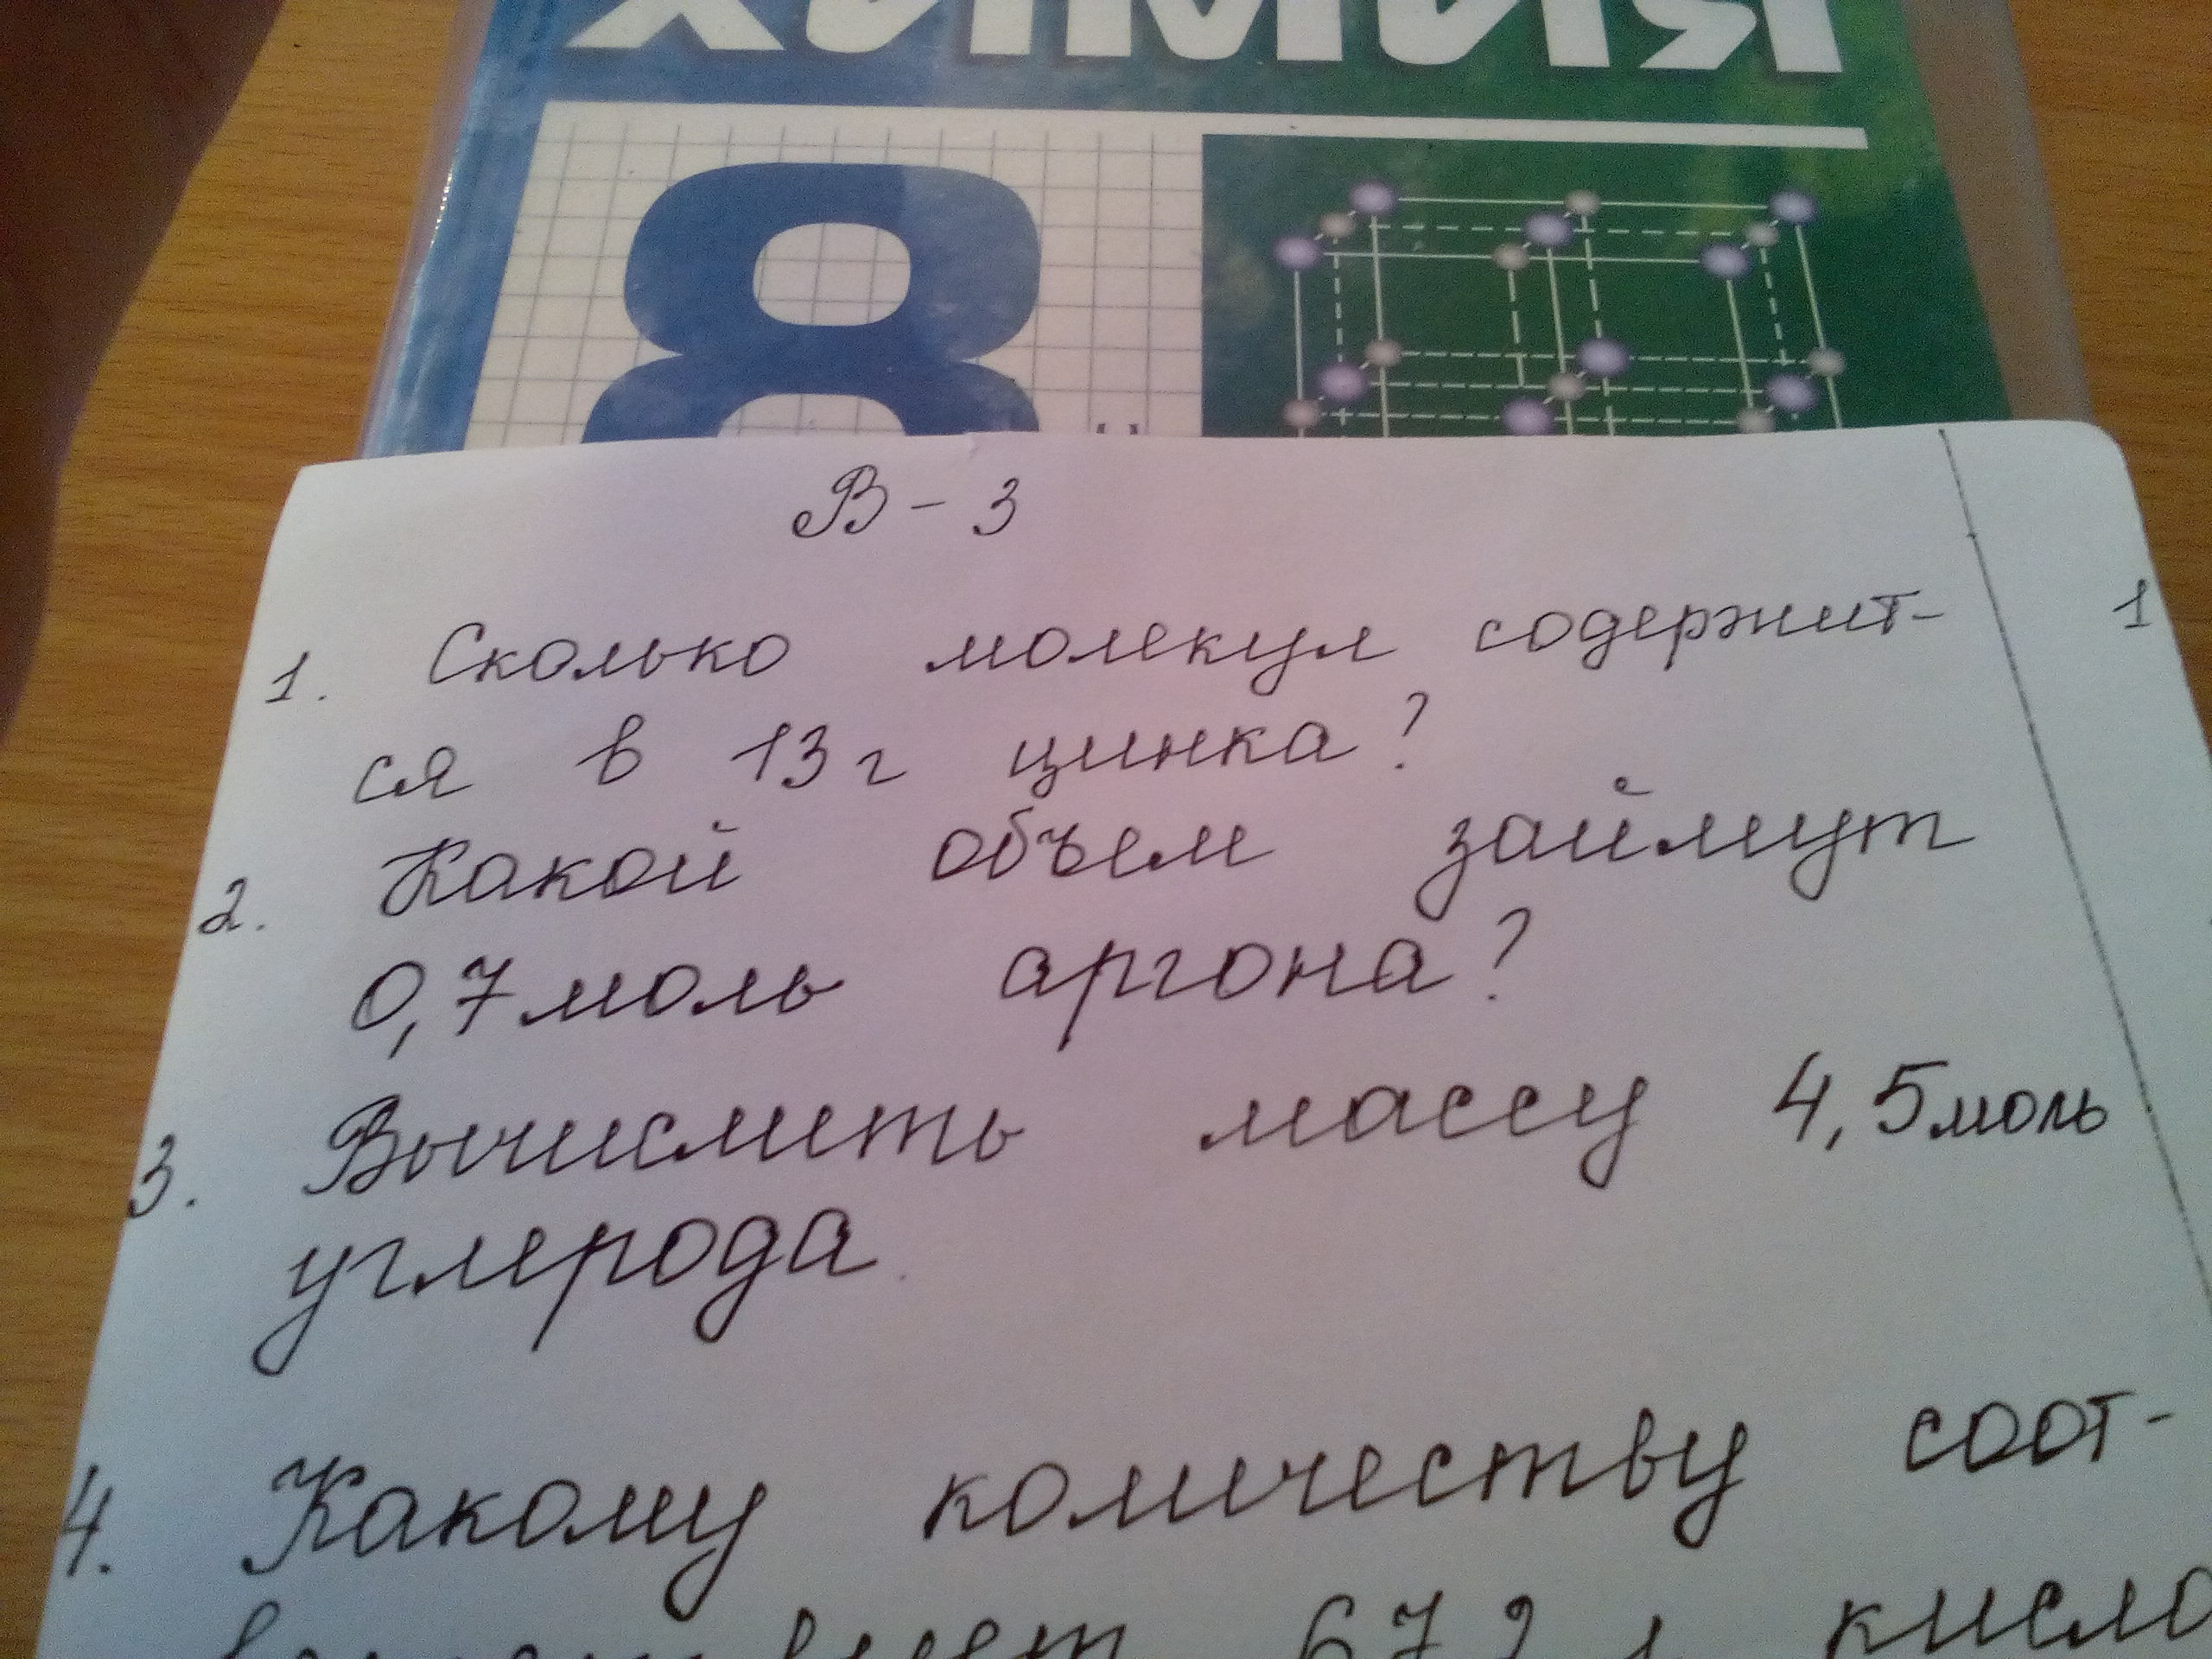 ХИМИЯ
8
В - 3
1. Сколько молекул содержит-
ся в 13 г цинка?
2. Какой объем займут
0,7 моль аргона?
3. Вычислить массу 4,5 моль
углерода.
4. Какому количеству соот-
1